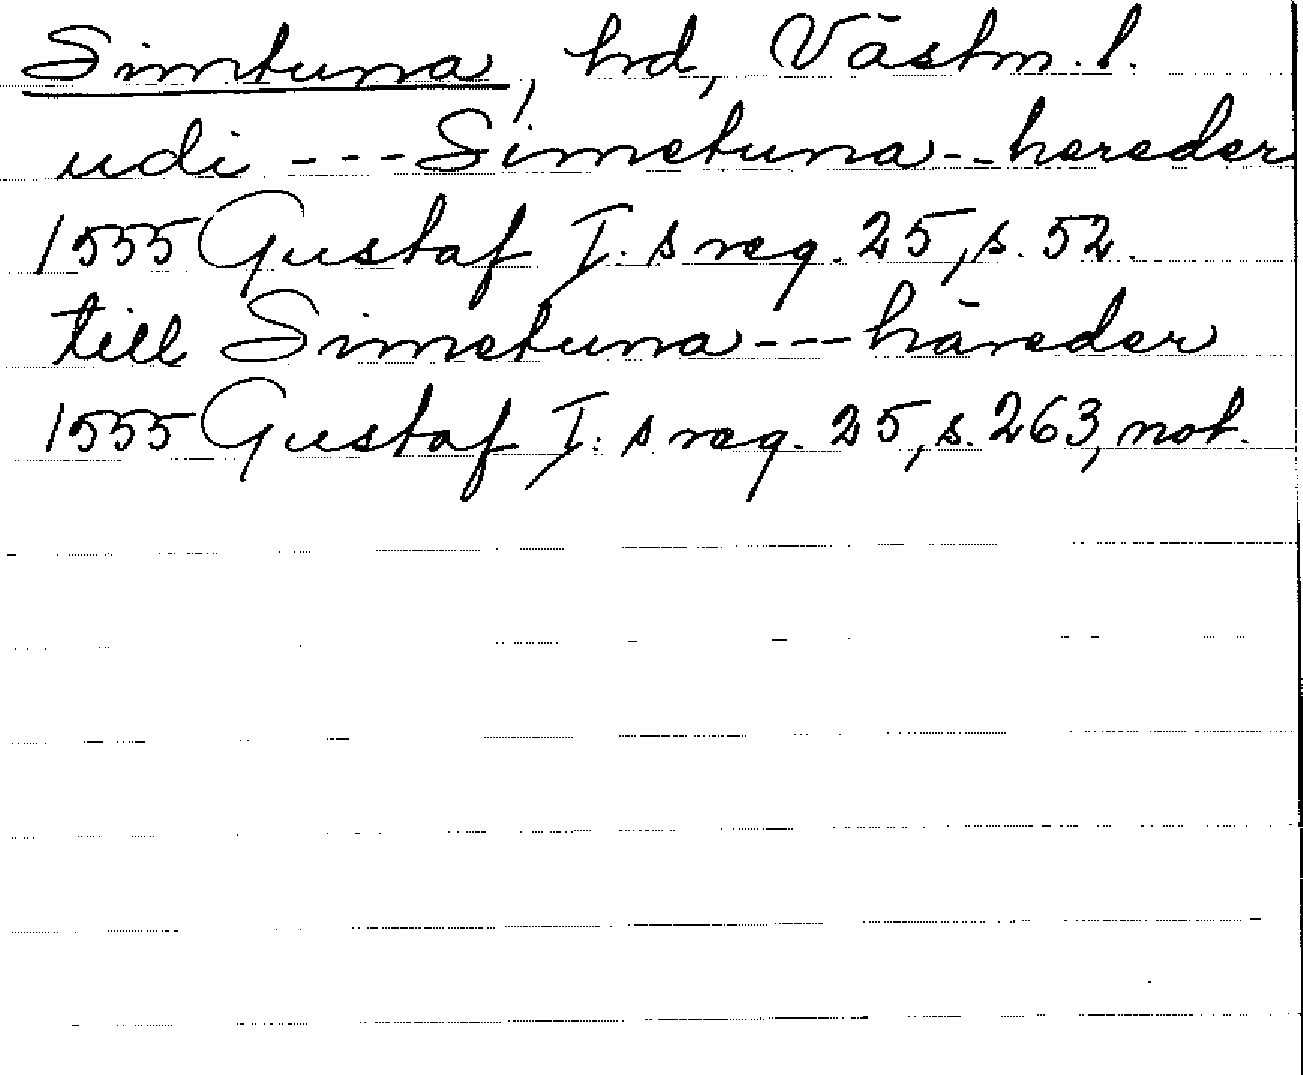 Simtuna, hd, Västm. l.
udi --- Simetuna -- hereder
1555 Gustaf I: s reg. 25, s. 52.
till Simetuna --- häreder
1555 Gustaf I: s reg. 25, s. 263, not.